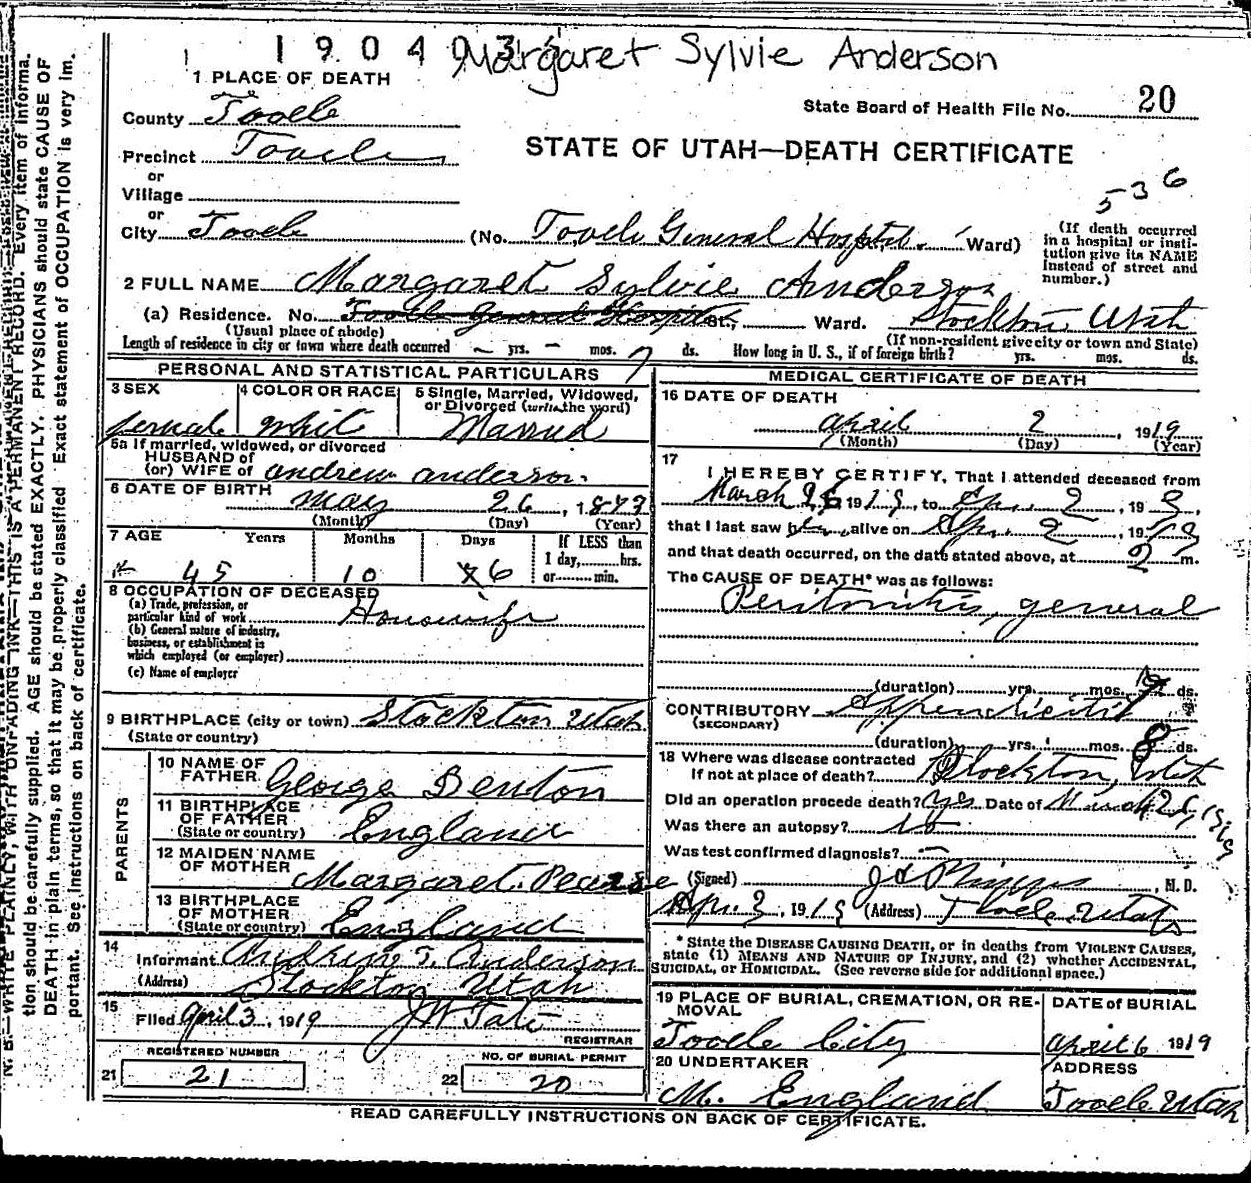 190403
Margaret Sylvie Anderson
1 PLACE OF DEATH
State Board of Health File No. 20
County Tooele
STATE OF UTAH—DEATH CERTIFICATE
Precinct Tooele
or
Village
or
536
City Tooele (No. Tooele General Hospital. Ward)
(If death occurred in a hospital or institution give its NAME instead of street and number.)
2 FULL NAME Margaret Sylvie Anderson
(a) Residence. No. Tooele General Hospital St., Ward. Stockton Utah
(Usual place of abode) (If non-resident give city or town and State)
Length of residence in city or town where death occurred – yrs. – mos. 7 ds. How long in U. S., if of foreign birth? yrs. mos. ds.
PERSONAL AND STATISTICAL PARTICULARS
3 SEX female
4 COLOR OR RACE white
5 Single, Married, Widowed, or Divorced (write the word) Married
5a If married, widowed, or divorced
HUSBAND of
(or) WIFE of andrew anderson.
6 DATE OF BIRTH may 26, 1873
(Month) (Day) (Year)
7 AGE Years Months Days If LESS than 1 day, hrs. or min.
45 10 6
8 OCCUPATION OF DECEASED
(a) Trade, profession, or particular kind of work Housewife
(b) General nature of industry, business, or establishment in which employed (or employer)
(c) Name of employer
9 BIRTHPLACE (city or town) Stockton Utah
(State or country)
PARENTS
10 NAME OF FATHER George Benton
11 BIRTHPLACE OF FATHER (State or country) England
12 MAIDEN NAME OF MOTHER Margaret Pearse
13 BIRTHPLACE OF MOTHER (State or country) England
14 Informant Andrew T. Anderson
(Address) Stockton Utah
15 Filed April 3, 1919 JW Tate
REGISTRAR
REGISTERED NUMBER
21 21
NO. OF BURIAL PERMIT
22 20
MEDICAL CERTIFICATE OF DEATH
16 DATE OF DEATH
april 2, 1919
(Month) (Day) (Year)
17 I HEREBY CERTIFY, That I attended deceased from
March 26 1919, to Apr. 2, 19
that I last saw her alive on Apr. 2, 1919
and that death occurred, on the date stated above, at 2 m.
The CAUSE OF DEATH* was as follows:
Peritonitis, general
(duration) yrs. mos. ds.
CONTRIBUTORY Appendicitis
(SECONDARY)
(duration) yrs. mos. 8 ds.
18 Where was disease contracted
If not at place of death? Stockton, Utah
Did an operation precede death? Yes Date of March 26, 1919
Was there an autopsy? no
Was test confirmed diagnosis? –
(Signed) , M. D.
Apr. 3, 1919 (Address) Tooele Utah
* State the DISEASE CAUSING DEATH, or in deaths from VIOLENT CAUSES,
state (1) MEANS AND NATURE OF INJURY, and (2) whether ACCIDENTAL,
SUICIDAL, or HOMICIDAL. (See reverse side for additional space.)
19 PLACE OF BURIAL, CREMATION, OR REMOVAL Tooele City
DATE of BURIAL april 6 1919
20 UNDERTAKER M. England
ADDRESS Tooele Utah
READ CAREFULLY INSTRUCTIONS ON BACK OF CERTIFICATE.
N. B.—WRITE PLAINLY, WITH UNFADING INK—THIS IS A PERMANENT RECORD. Every item of informa-
tion should be carefully supplied. AGE should be stated EXACTLY. PHYSICIANS should state CAUSE OF
DEATH in plain terms, so that it may be properly classified. Exact statement of OCCUPATION is very im-
portant. See instructions on back of certificate.